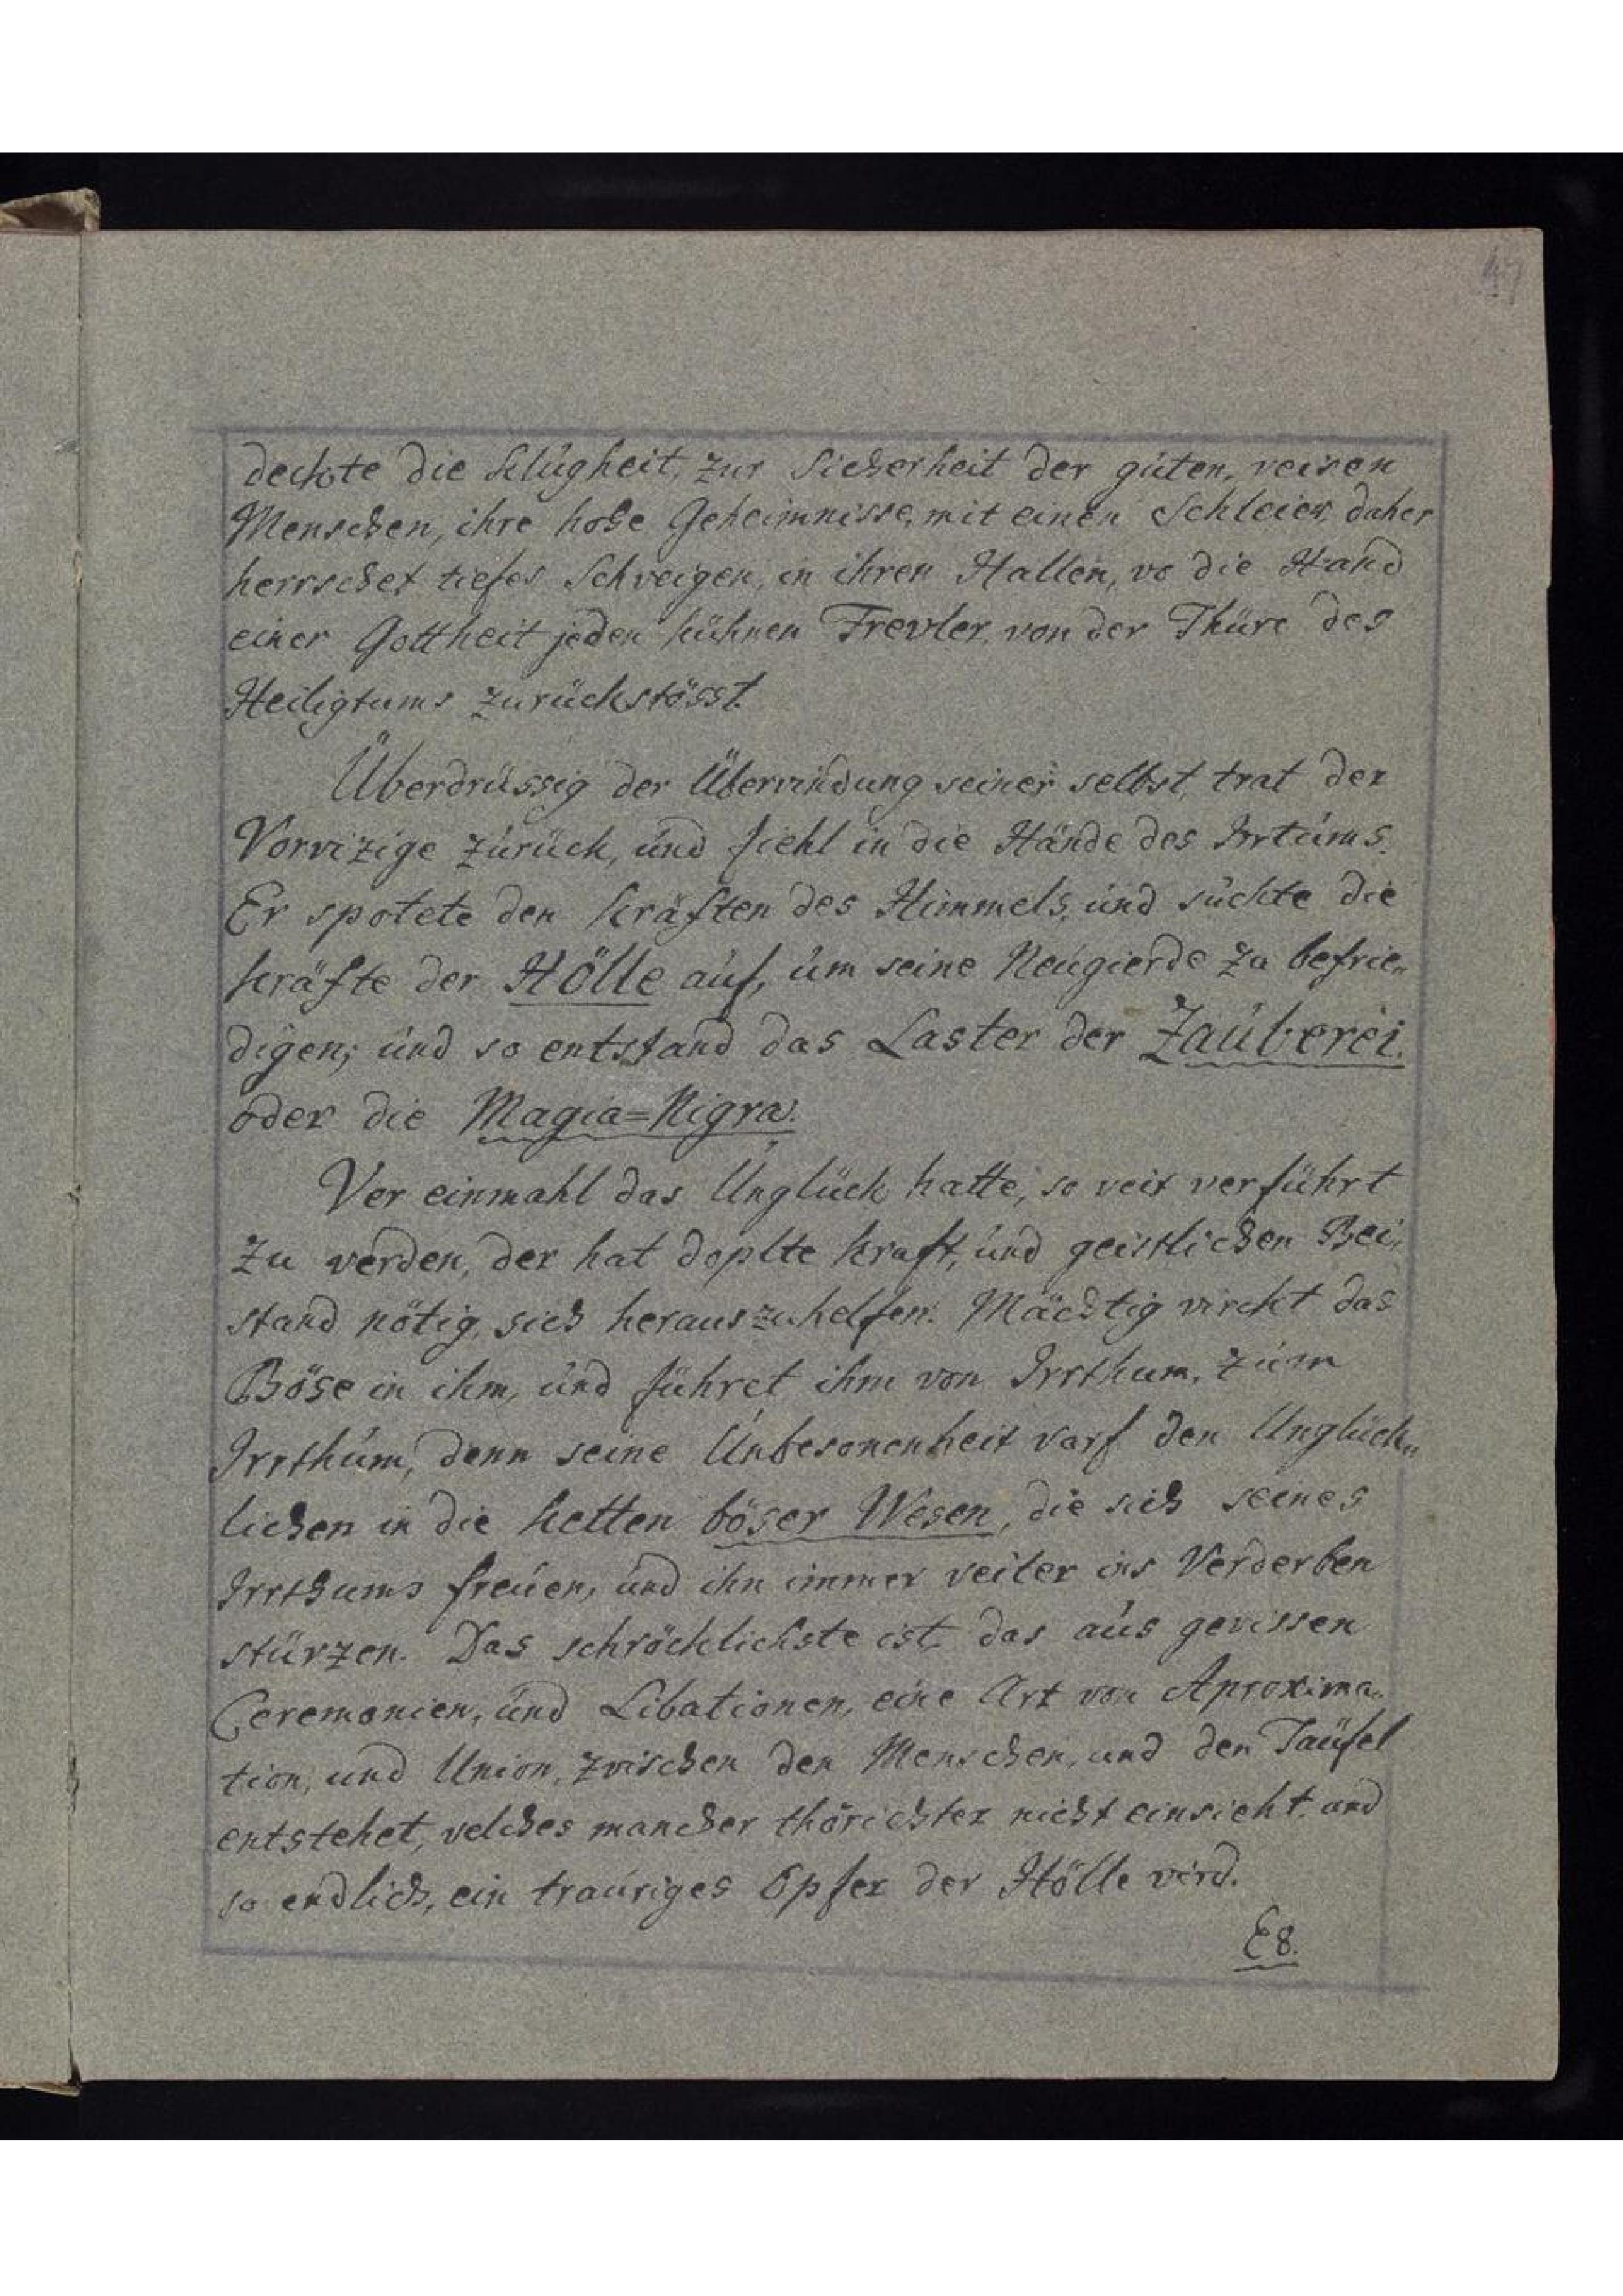 deckte die Klugheit, zur Sicherheit der guten, veisen
Menschen, ihre hohe Geheimnisse, mit einen Schleier, daher
herrschet tiefes Schveigen, in ihren Hallen, vo die Hand
einer Gottheit jeden kühnen Frevler, von der Thüre des
Heiligtums zurückstösst.
Überdrüssig der Übervindung seiner selbst, trat der
Vorvizige zurück, und fiehl in die Hände des Irrtums.
Er spotete den Kräften des Himmels, und suchte die
Kräfte der Hölle auf, um seine Neugierde zu befrie„
digen; und so entstand das Laster der Zauberei.
oder die Magia=Nigra.
Ver einmahl das Unglück hatte, so veit verführt
zu verden, der hat doplte Kraft, und geistlichen Bei„
stand nötig, sich herauszuhelfen. Mächtig virckt das
Böse in ihm, und führet ihm von Irrthum, zum
Irrthum, denn seine Unbesonenheit varf den Unglück„
lichen in die Ketten böser Wesen, die sich seines
Irrthums freuen, und ihn immer veiter ins Verderben
stürzen. Das schröcklichste ist, das aus gevissen
Ceremonien, und Libationen, eine Art von Aproxima„
tion, und Union, zvischen den Menschen, und den Taüfel
entstehet, velches mancher thörichter nicht einsieht, und
so endlich, ein trauriges Opfer der Hölle vird.
E8.